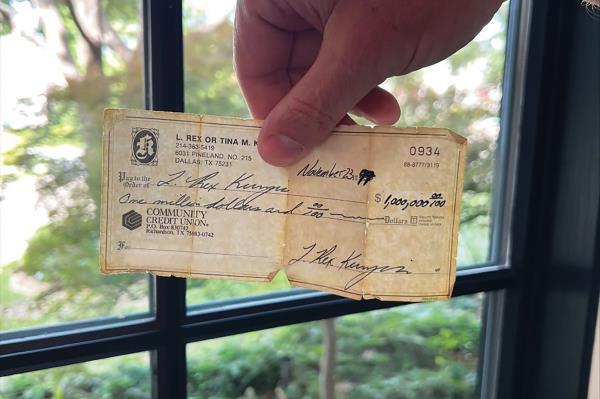 L. REX OR TINA M. K
214-363-5419
6031 PINELAND, NO. 215
DALLAS, TX 75231
0934
88-8777/3119
November 23, 1999
Pay to the
Order of L. Rex Kunze
$ 1,000,000 00/100
One million dollars and 00/100
Dollars
COMMUNITY
CREDIT UNION
P.O. Box 830742
Richardson, TX 75083-0742
For
L. Rex